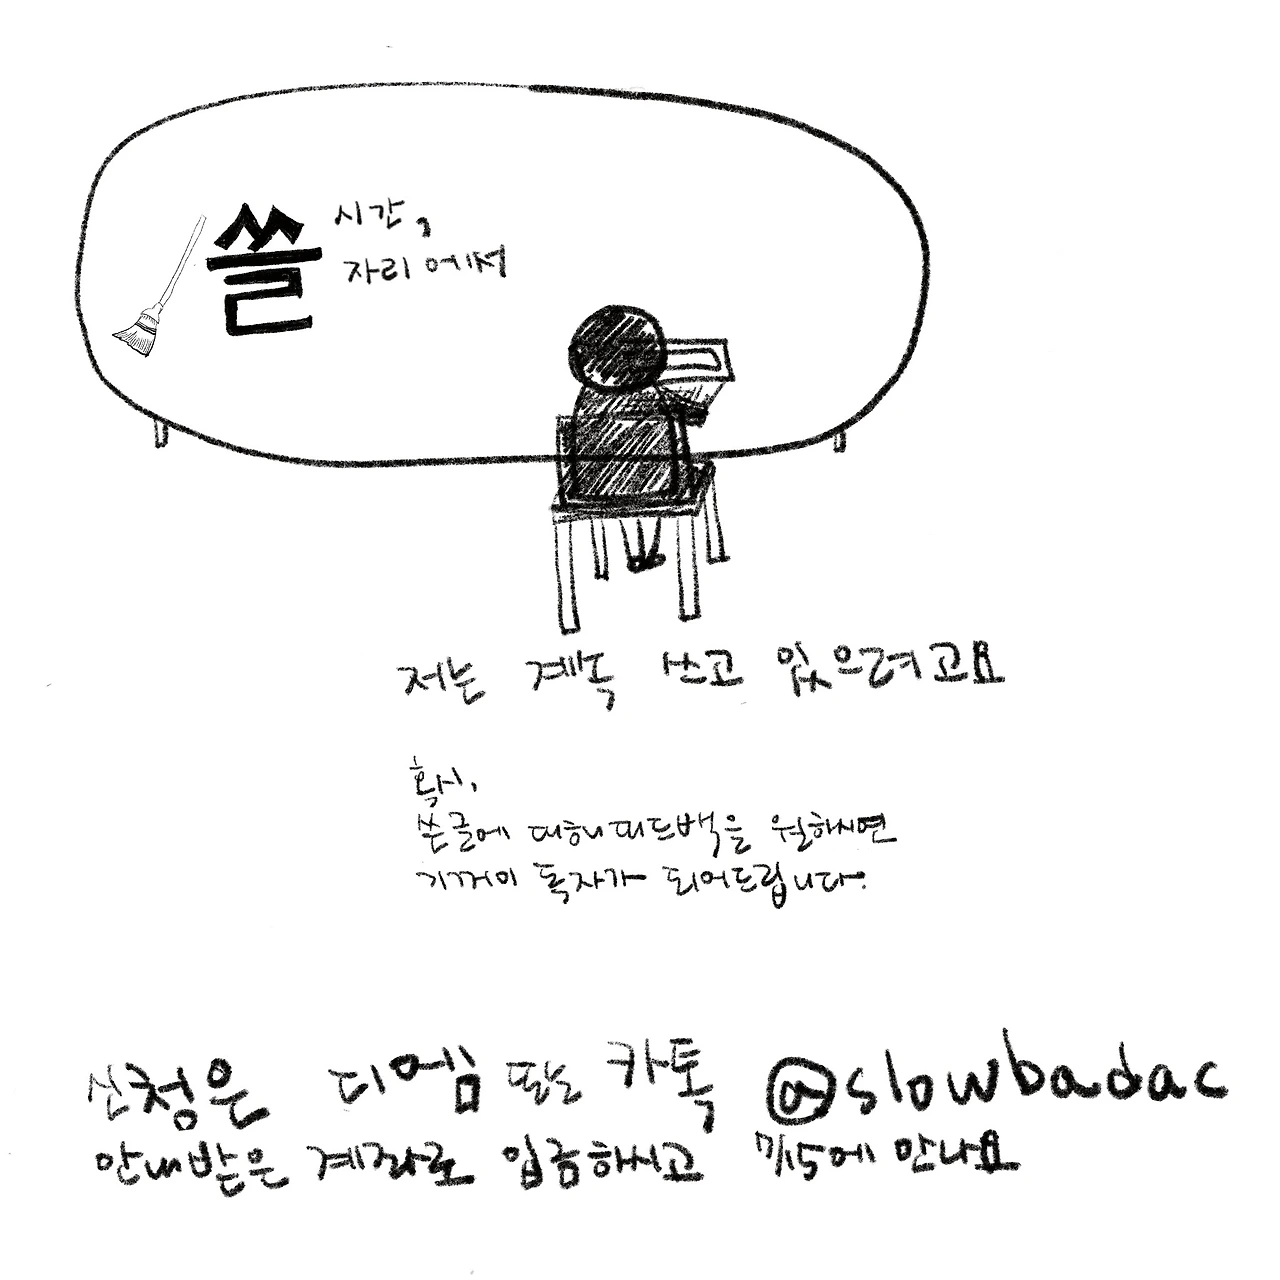 쓸 시간,
자리에서
저는 계속 쓰고 있으려고요
혹시,
쓴글에 대해 피드백을 원하시면
기꺼이 독자가 되어드립니다.
신청은 디엠 또는 카톡 @slowbadac
안내받은 계좌로 입금하시고 7/15에 만나요